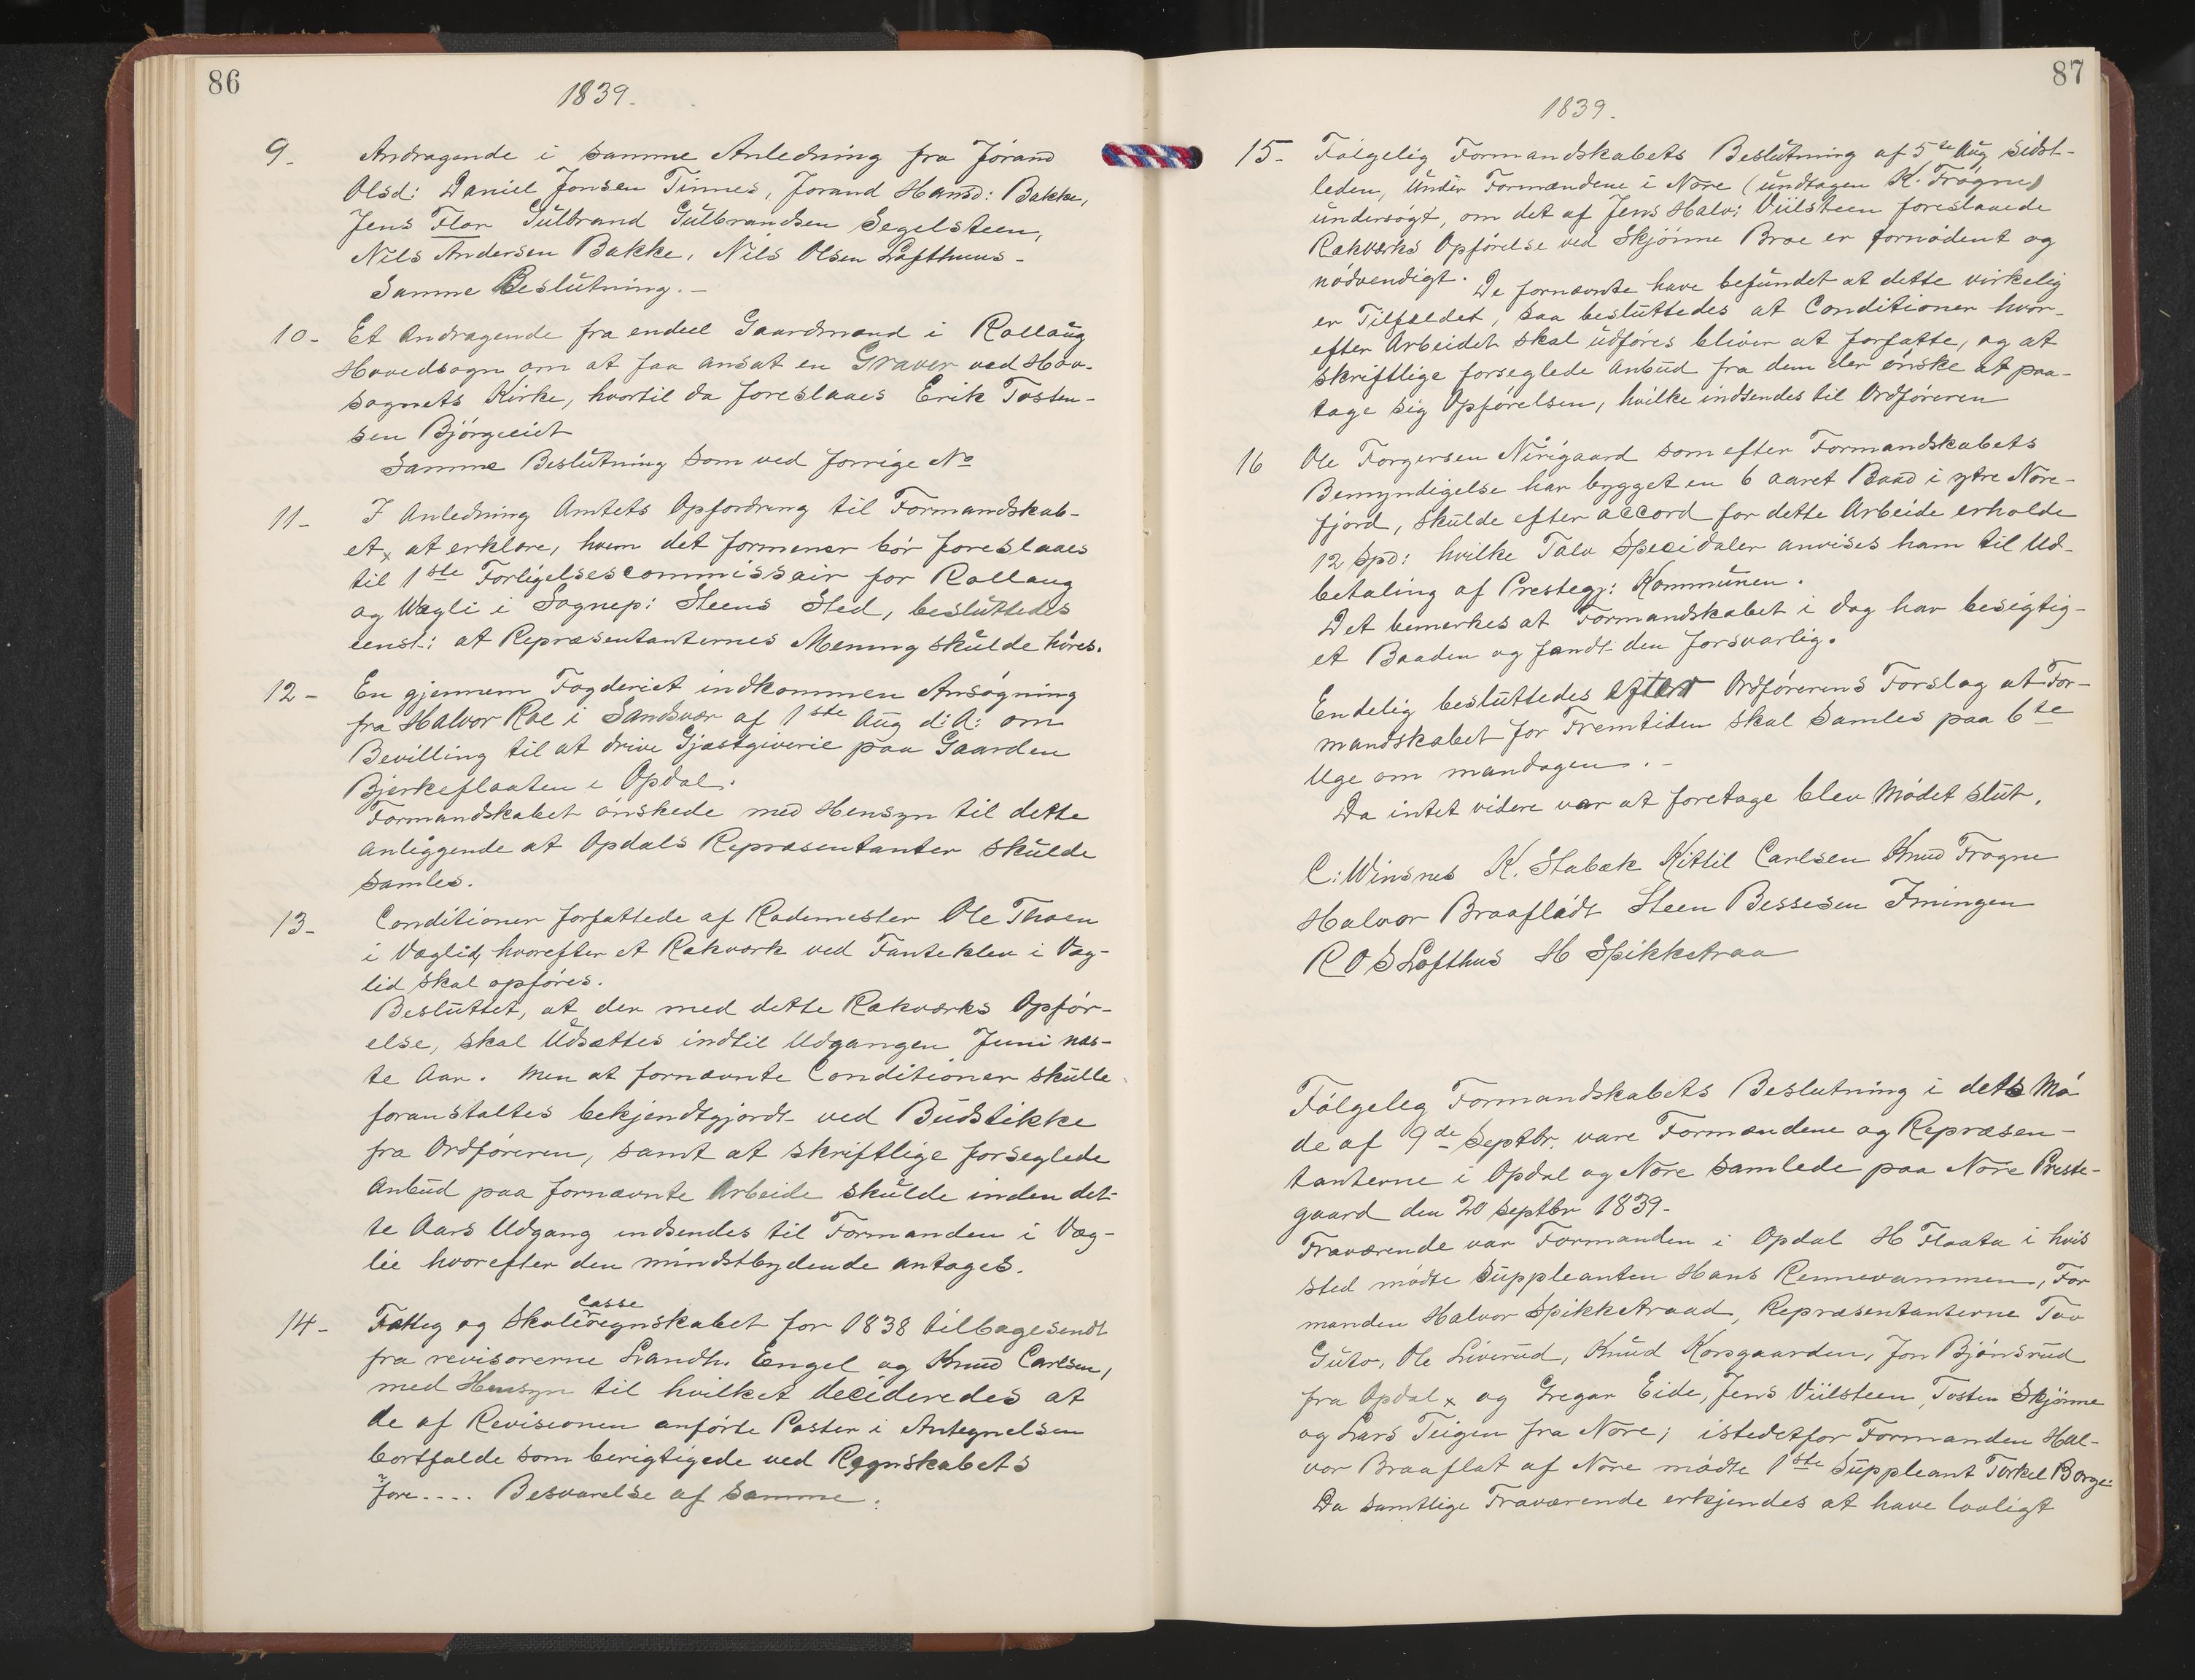 86
1839.
9. Andragende i samme Anledning fra Jórand
Olsd: Daniel Jonsen Tinnes, Jorand Hansd: Bakke,
Jens Flor Gulbrand Gulbrandsen Segelsteen,
Nils Andersen Bakke, Nils Olsen Lofthuus -
Samme Beslutning. -
10 - Et Andragende fra endeel Gaardmænd i Rollaug
Hovedsogn om at faa ansat en Graver ved Hov-
sognets Kirke, hvortil da foreslaaes Erik Tosten-
sen Bjørgeeiet
Samme Beslutning som ved forrige No
11 - I Anledning Amtets Opfordring til Formandskab-
et x at erklære, hvem det formener bør foreslaaes
til 1ste Forligelsescommissair for Rollaug
og Wægli i Sognep: Steens Sted, besluttedes
eenst: at Repræsentanternes Mening skulde høres.
12 - En gjennem Fogderiet indkommen Ansøgning
fra Halvor Roe i Sandsvær af 1ste Aug d:A: om
Bevilling til at drive Gjæstgiverie paa Gaarden
Bjerkeflaaten i Opdal.
Formandskabet ønskede med Hensyn til dette
anliggende at Opdals Repræsentanter skulde
samles.
13 - Conditioner forfattede af Rodemester Ole Thoen
i Væglid, hvorefter et Rækværk ved Fanteklev i Væg-
lid skal opføres.
Besluttet, at der med dette Rækværks Opfør-
else, skal Udsættes indtil Udgangen Juni næs-
te Aar. Men at fornævnte Conditioner skulle
foranstaltes bekjendtgjordt ved Budstikke
fra Ordføreren, samt at skriftlige forseglede
Anbud paa fornævnte Arbeide skulde inden det-
te Aars Udgang indsendes til Formanden i Væg-
lie hvorefter den mindstbydende antages.
14 - Fattig og Skolecasseregnskabet for 1838 tilbagesendt
fra revisorerne Landh. Engel og Knud Carlsen,
med Hensyn til hvilket decideredes at
de af Revisionen anførte Poster i Antegnelsen
bortfalde som berigtigede ved Regnskabets
fore.... Besvarelse af samme.
87
1839.
15 - Følgelig Formandskabets Beslutning af 5te Aug sidst-
leden, Under Formændene i Nore (undtagen K. Frøgne)
undersøgt, om det af Jens Halv: Viilsteen foreslaaede
Rækværks Opførelse ved Skjønne Broe er fornødent og
nødvendigt. De fornævnte have befundet at dette virkelig
er Tilfældet, saa besluttedes at Conditioner hvor-
efter Arbeidet skal udføres bliver at forfatte, og at
skriftlige forseglede Anbud fra dem der ønske at paa-
tage sig Opførelsen, hvilke indsendes til Ordføreren
16 Ole Torgersen Nirigaard som efter Formandskabets
Bemyndigelse har bygget en 6 aaret Baad i ytre Nore-
fjord, skulde efter accord for dette Arbeide erholde
12 Spd: hvilke Tolv Specidaler anvises ham til Ud-
betaling af Prestegj: Kommunen.
Det bemerkes at Formandskabet i dag har besigtig-
et Baaden og fandt den forsvarlig.
Endelig besluttedes efter Ordførerens Forslag at For-
mandskabet for Fremtiden skal Samles paa 6te
Uge om mandagen. -
Da intet videre var at foretage blev Mødet slut.
C: Winsnes K. Stabæk Kittil Carlsen Knud Frogne
Halvor Braaflådt Steen Bessesen Imingen
R O S Lofthus H Spikketraa
Følgeleg Formandskabets Beslutning i dets Mø
de af 9de Septbr. vare Formændene og Repræsen-
tanterne i Opdal og Nore samlede paa Nore Preste-
gaard den 20 Septbr 1839.
Fraværende var Formanden i Opdal H Flaata i hvis
sted mødte Suppleanten Hans Rennevammen, For
manden Halvor Spikketraad, Repræsentanterne Tov
Guto, Ole Liverud, Knud Korsgaarden, Jon Bjønsrud
fra Opdal x og Gregar Eide, Jens Viilsteen, Tosten Skjönne
og Lars Teigen fra Nore; istedetfor Formanden Hal-
vor Braaflat af Nore mødte 1ste Suppleant Torkel Borge.
Da samtlige Fraværende erkjendes at have lovligt